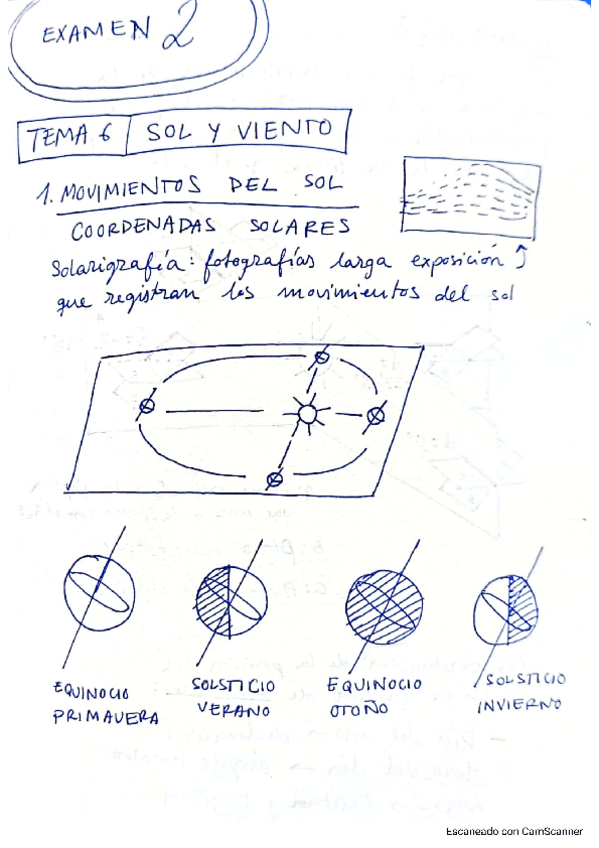 EXAMEN 2
TEMA 6 SOL Y VIENTO
1. MOVIMIENTOS DEL SOL
COORDENADAS SOLARES
Solarigrafía: fotografías larga exposición
que registran los movimientos del sol
EQUINOCIO PRIMAVERA
SOLSTICIO VERANO
EQUINOCIO OTOÑO
SOLSTICIO INVIERNO
Escaneado con CamScanner